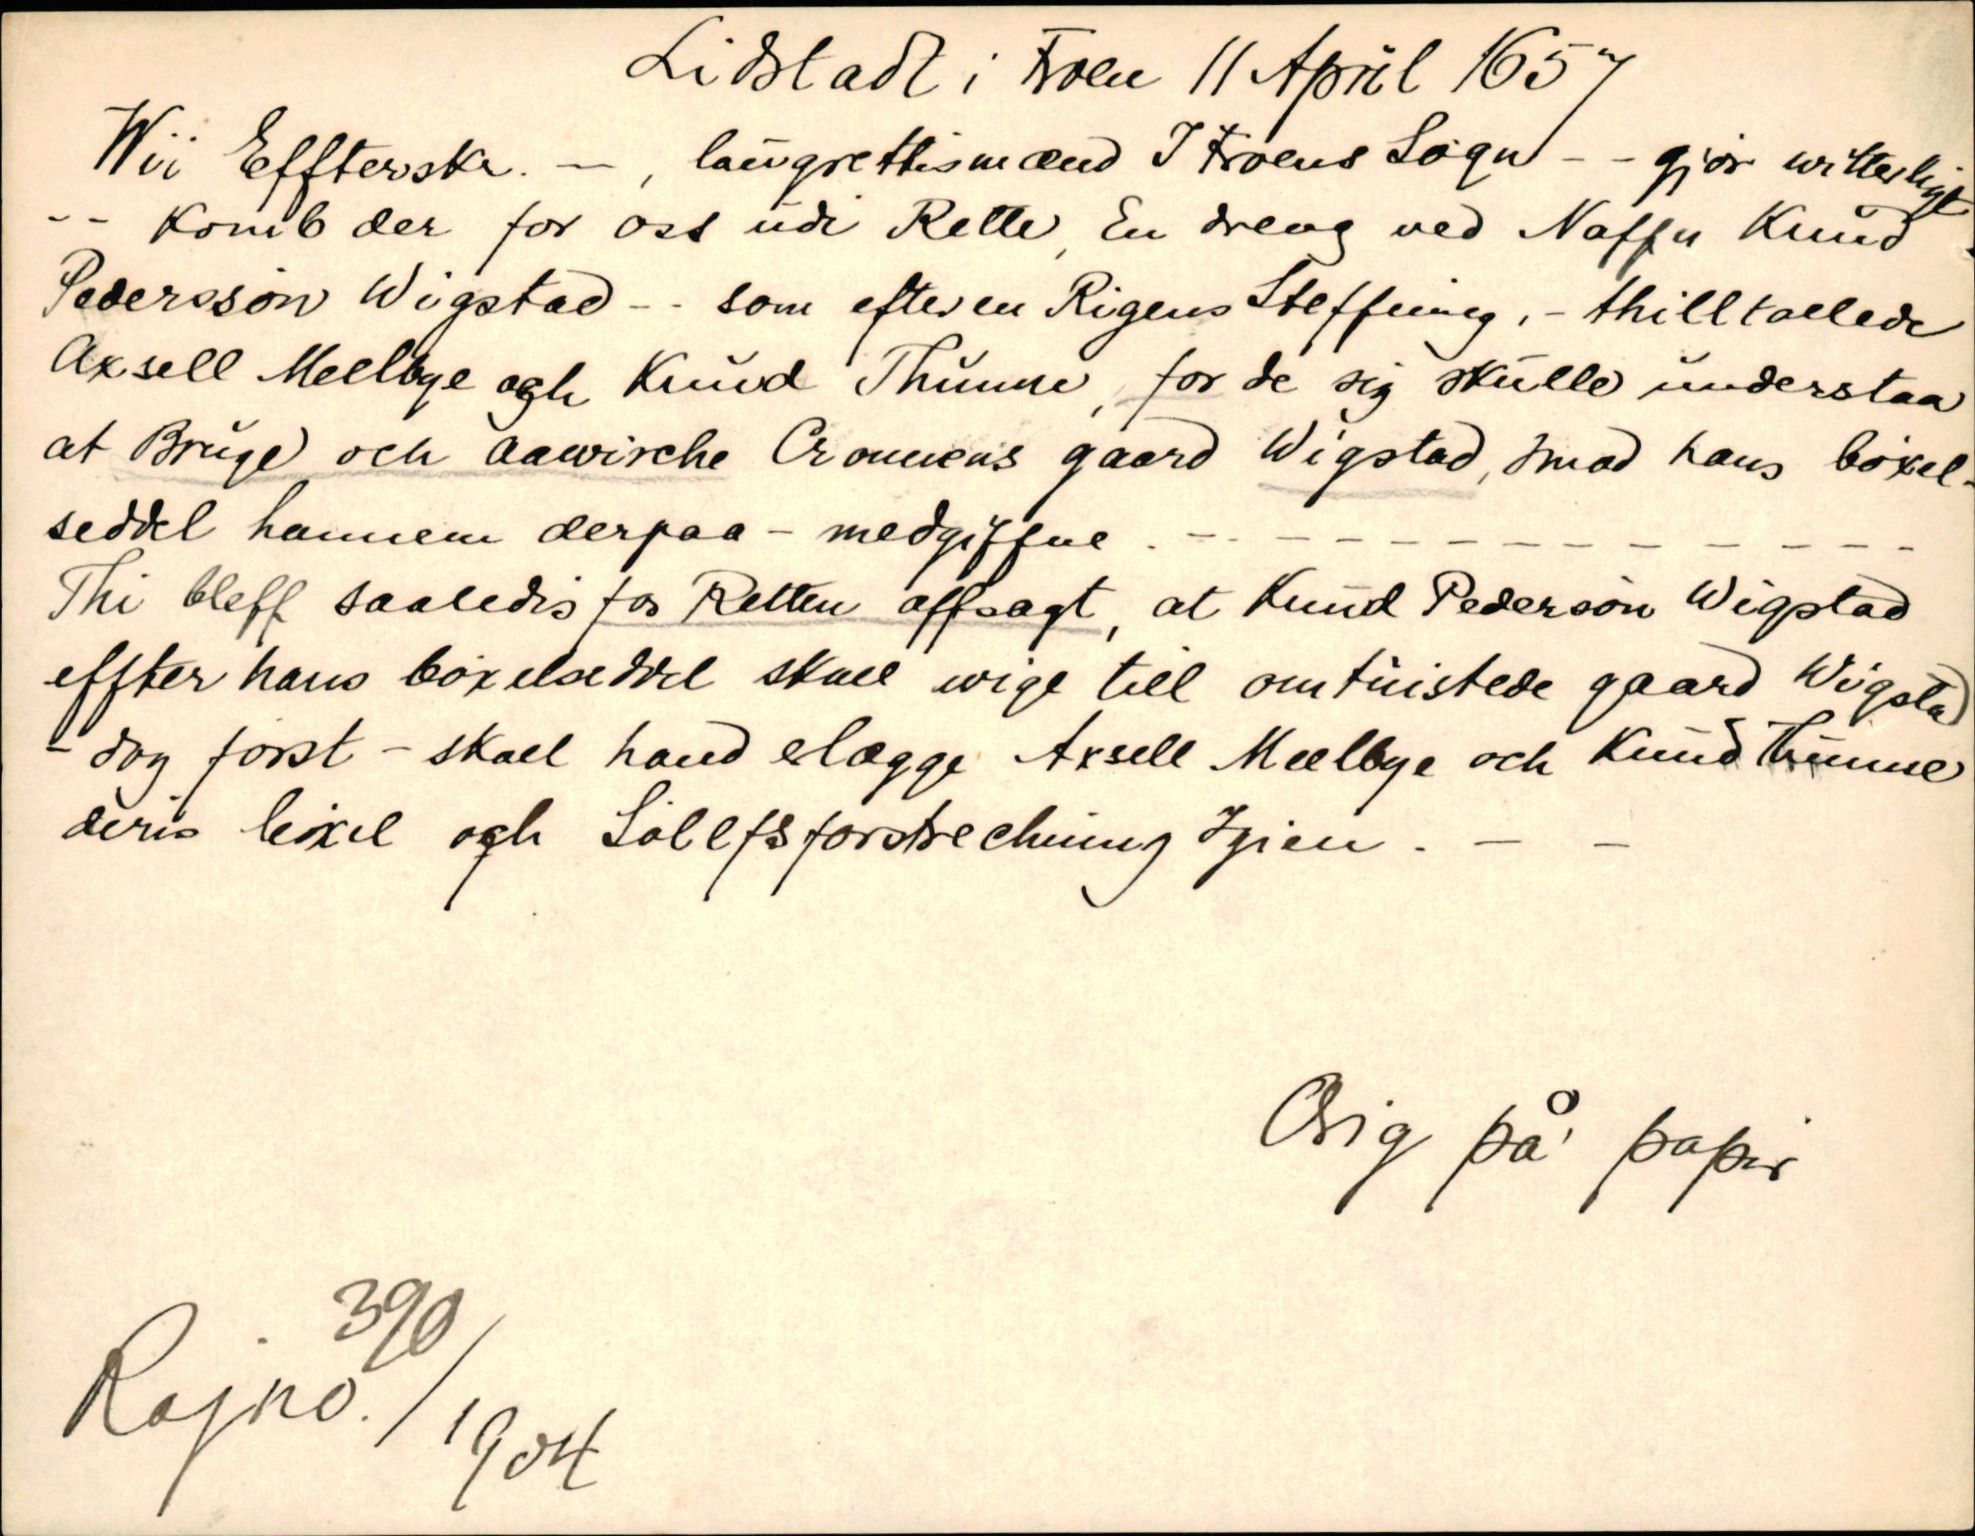 Lidstadt i Froen 11 April 1657
Wii Effterskr. — , laugrettismænd I Froens Sogn - - gjør witterligt
-- Komb der for oss udi Rette, En dreng ved Naffn Knud
Pedersøn Wigstad -- som efter en Rigens Steffning, - thilltaelede
Axsell Meelbye ogh Knud Thunne, for de sig skulle understaa
at Bruge och aawirche Cronnens gaard Wigstad, Imod hans bøxel-
seddel hannem derpaa - medgiffne . - - - - - - - - - - - - -
Thi bleff saaledis for Retten affsagt, at Knud Pedersøn Wigstad
effter hans bøxelseddel skael wige till omtuistede gaard Wigstad
- dog først - skael hand elægge Axsell Meelbye och Knud Thunne
deris bøxel ogh Sølffsforstrechning Igien . — —
Orig på papir
390
Rajno. / 1904